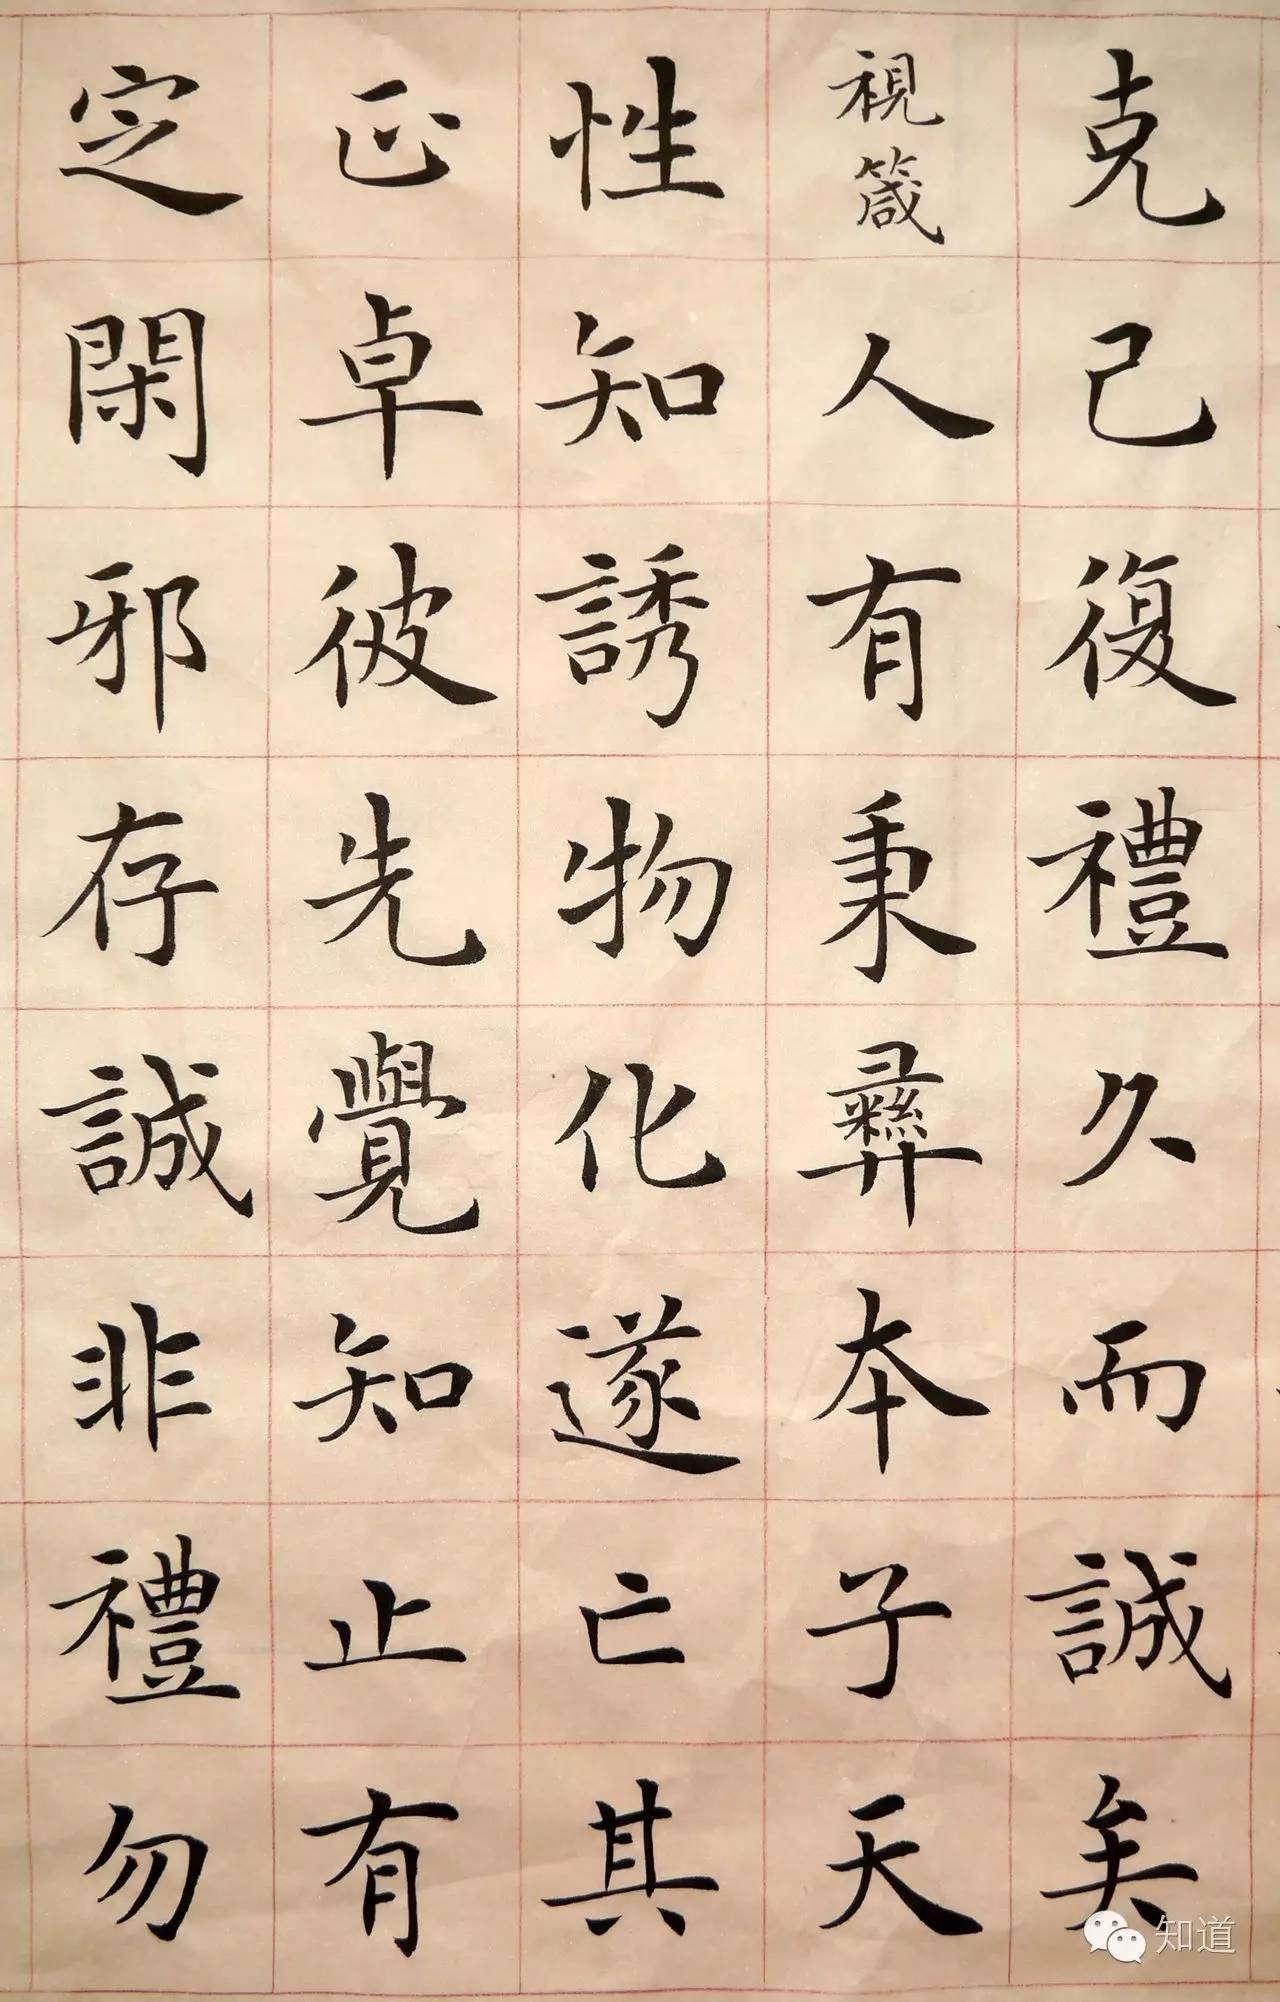 克己復禮久而誠矣
視箴
人有秉彝本乎天
性知誘物化遂亡其
正卓彼先覺知止有
定閑邪存誠非禮勿
知道